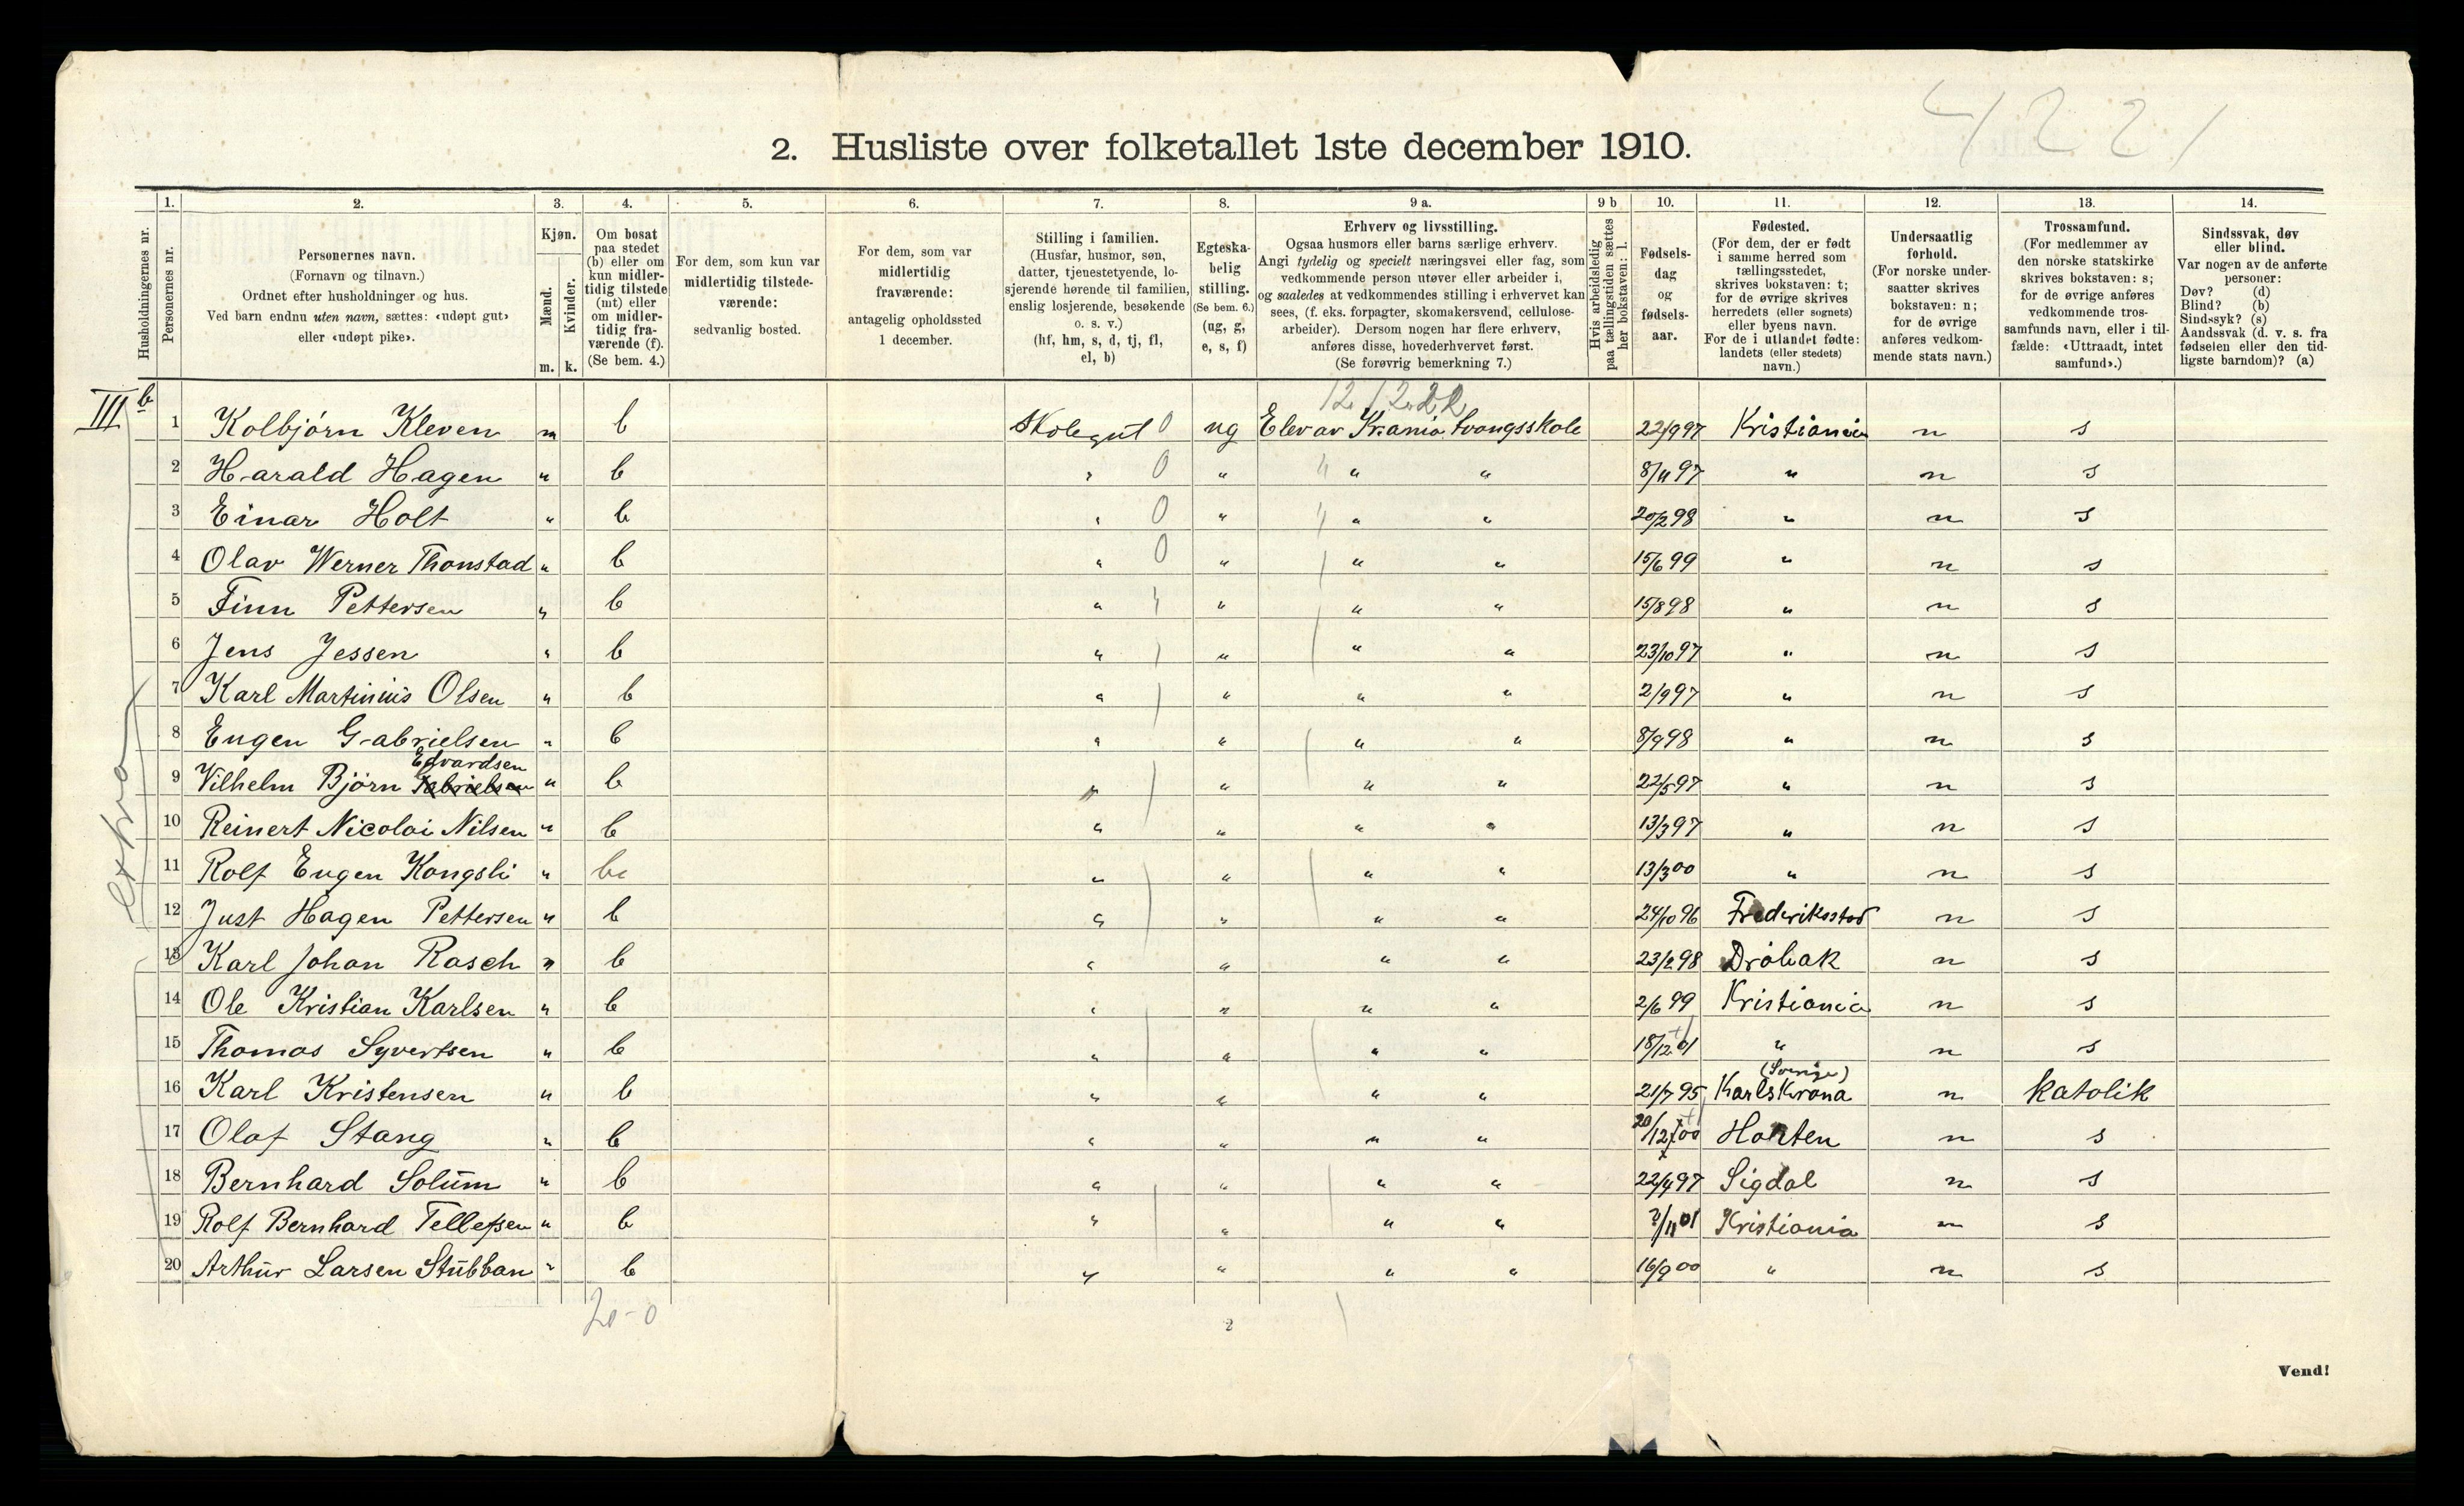 4221
2. Husliste over folketallet 1ste december 1910.
Husholdningernes nr.
1.
Personernes nr.
2.
Personernes navn.
(Fornavn og tilnavn.)
Ordnet efter husholdninger og hus.
Ved barn endnu uten navn, sættes: «udøpt gut»
eller «udøpt pike».
3.
Kjøn.
Mænd.
Kvinder.
m. k.
4.
Om bosat
paa stedet
(b) eller om
kun midler-
tidig tilstede
(mt) eller
om midler-
tidig fra-
værende (f).
(Se bem. 4.)
5.
For dem, som kun var
midlertidig tilstede-
værende:
sedvanlig bosted.
6.
For dem, som var
midlertidig
fraværende:
antagelig opholdssted
1 december.
7.
Stilling i familien.
(Husfar, husmor, søn,
datter, tjenestetyende, lo-
sjerende hørende til familien,
enslig losjerende, besøkende
o. s. v.)
(hf, hm, s, d, tj, fl,
el, b)
8.
Egteska-
belig
stilling.
(Se bem. 6.)
(ug, g,
e, s, f)
9 a.
Erhverv og livsstilling.
Ogsaa husmors eller barns særlige erhverv.
Angi tydelig og specielt næringsvei eller fag, som
vedkommende person utøver eller arbeider i,
og saaledes at vedkommendes stilling i erhvervet kan
sees, (f. eks. forpagter, skomakersvend, cellulose-
arbeider). Dersom nogen har flere erhverv,
anføres disse, hovederhvervet først.
(Se forøvrig bemerkning 7.)
9 b
Hvis arbeidsledig
paa tællingstiden sættes
her bokstaven: l.
10.
Fødsels-
dag
og
fødsels-
aar.
11.
Fødested.
(For dem, der er født
i samme herred som
tællingsstedet,
skrives bokstaven: t;
for de øvrige skrives
herredets (eller sognets)
eller byens navn.
For de i utlandet fødte:
landets (eller stedets)
navn.)
12.
Undersaatlig
forhold.
(For norske under-
saatter skrives
bokstaven: n;
for de øvrige
anføres vedkom-
mende stats navn.)
13.
Trossamfund.
(For medlemmer av
den norske statskirke
skrives bokstaven: s;
for de øvrige anføres
vedkommende tros-
samfunds navn, eller i til-
fælde: «Uttraadt, intet
samfund».)
14.
Sindssvak, døv
eller blind.
Var nogen av de anførte
personer:
Døv? (d)
Blind? (b)
Sindssyk? (s)
Aandssvak (d. v. s. fra
fødselen eller den tid-
ligste barndom)? (a)
III b
Extra
1 Kolbjørn Kleven m b Skolegut 0 ug Elev av Kr.ania tvangsskole 22/9 97 Kristiania n s
2 Harald Hagen " b " 0 " " " 8/11 97 " n s
3 Einar Holt " b " 0 " " " 20/2 98 " n s
4 Olav Werner Thonstad " b " 0 " " " 15/6 99 " n s
5 Finn Pettersen " b " " " " 15/8 98 " n s
6 Jens Jessen " b " " " " 23/10 97 " n s
7 Karl Martinius Olsen " b " " " " 2/9 97 " n s
8 Eugen Gabrielsen " b " " " " 8/9 98 " n s
Edvardsen
9 Vilhelm Bjørn Gabrielsen " b " " " " 22/5 97 " n s
10 Reinert Nicolai Nilsen " b " " " " 13/3 97 " n s
11 Rolf Eugen Kongsli " b " " " " 13/3 00 " n s
12 Just Hagen Pettersen " b " " " " 24/10 96 Frederiksstad n s
13 Karl Johan Rasch " b " " " " 23/2 98 Drøbak n s
14 Ole Kristian Karlsen " b " " " " 2/6 99 Kristiania n s
15 Thomas Syvertsen " b " " " " 18/12 01 " n s
(Sverige)
16 Karl Kristensen " b " " " " 21/7 95 Karlskrona n katolik
17 Olaf Stang " b " " " " 20/12 00 Horten n s
18 Bernhard Solum " b " " " " 22/4 97 Sigdal n s
19 Rolf Bernhard Tellefsen " b " " " " 7/11 01 Kristiania n s
20 Arthur Larsen Stubban " b " " " " 16/9 00 " n s
20-0
2
Vend!